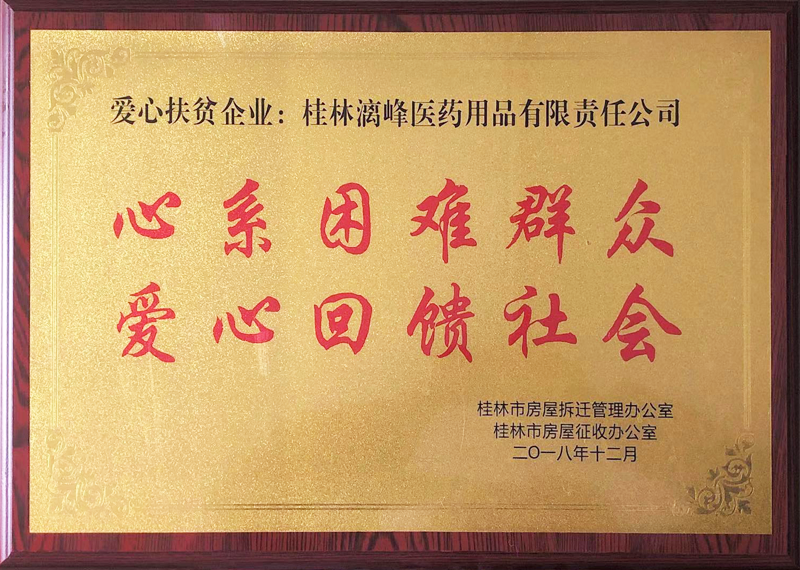 爱心扶贫企业：桂林漓峰医药用品有限责任公司
心系困难群众
爱心回馈社会
桂林市房屋拆迁管理办公室
桂林市房屋征收办公室
二〇一八年十二月